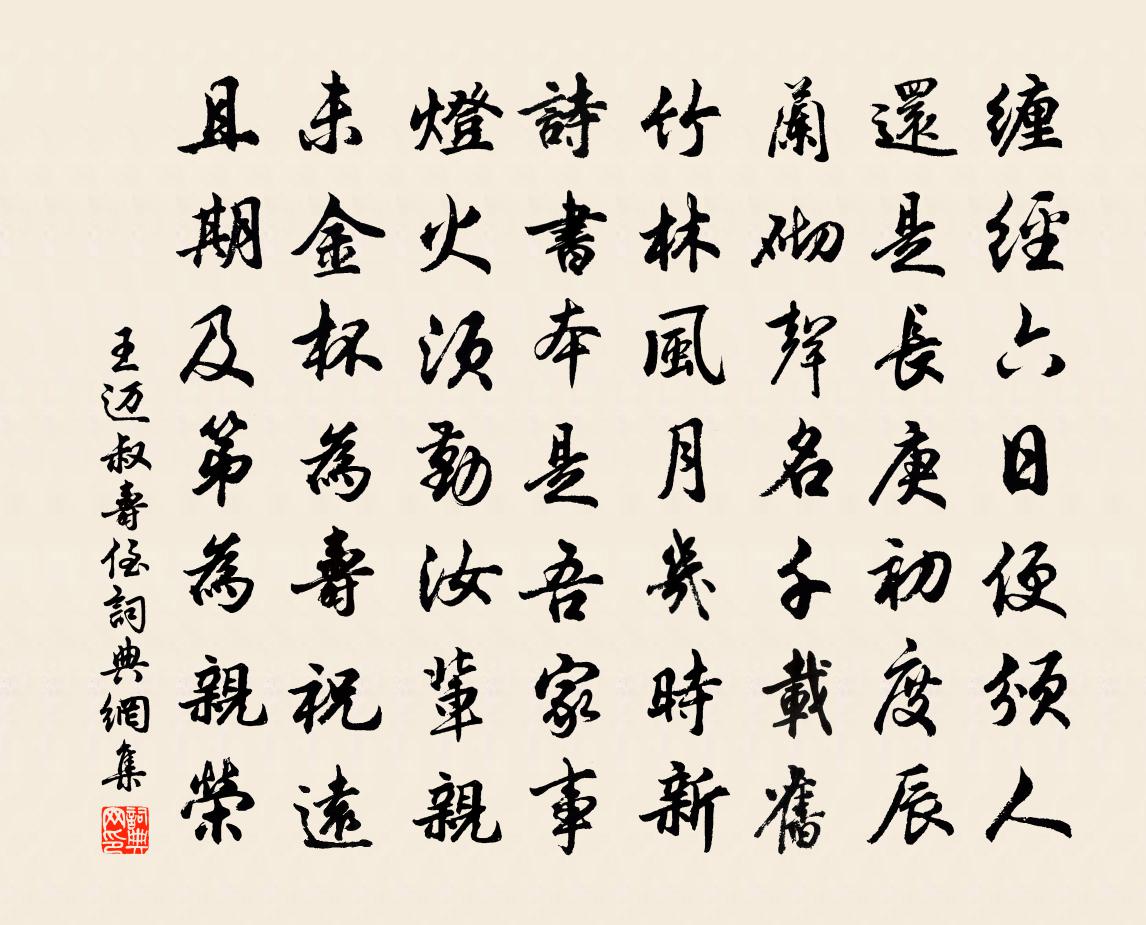 纏經六日便頒人
還是長庚初度辰
蘭砌聲名千載舊
竹林風月幾時新
詩書本是吾家事
燈火須勤汝輩親
未金杯為壽祝遠
且期及第為親榮
王迈叔壽侄詞典網集
詞典网印